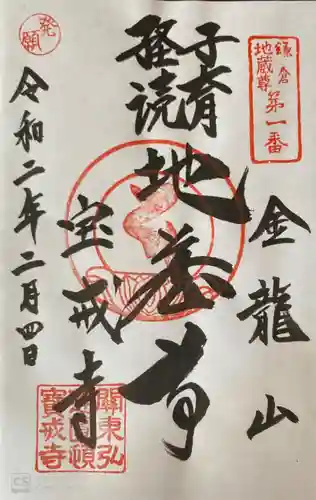 鎌倉
地蔵尊
第一番
金龍山
子育
経読
地蔵尊
宝戒寺
発願
令和二年二月四日
關東弘
寶戒寺
CS